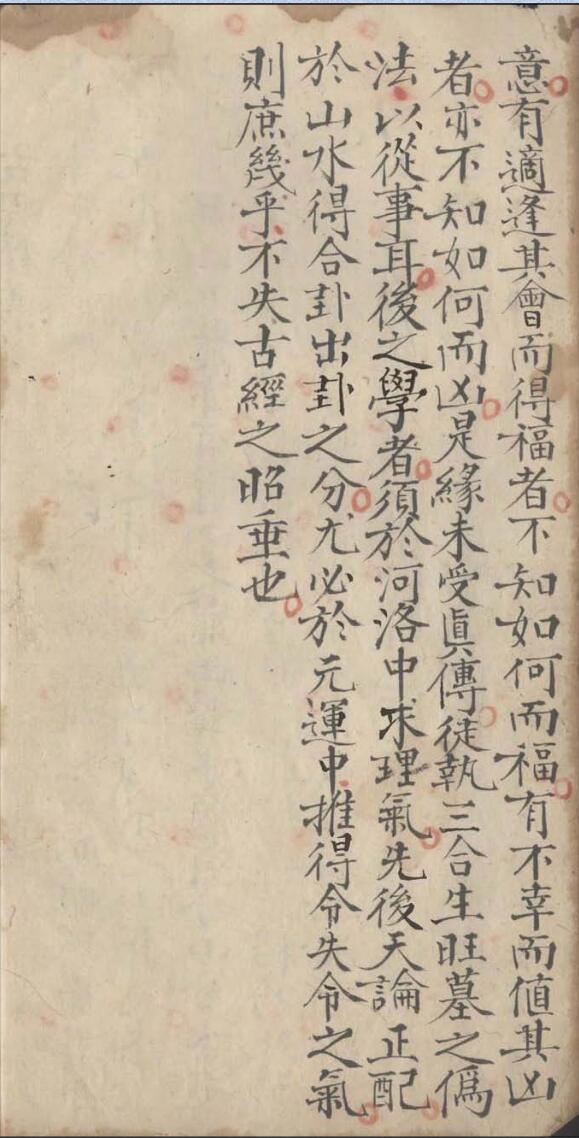 意有適逢其會而得福者不知如何而福有不幸而値其凶
者亦不知如何而凶是緣未受眞傳徒執三合生旺墓之僞
法以從事耳後之學者須於河洛中求理氣先後天論正配
於山水得合卦出卦之分尤必於元運中推得令失令之氣
則庶幾乎不失古經之昭垂也